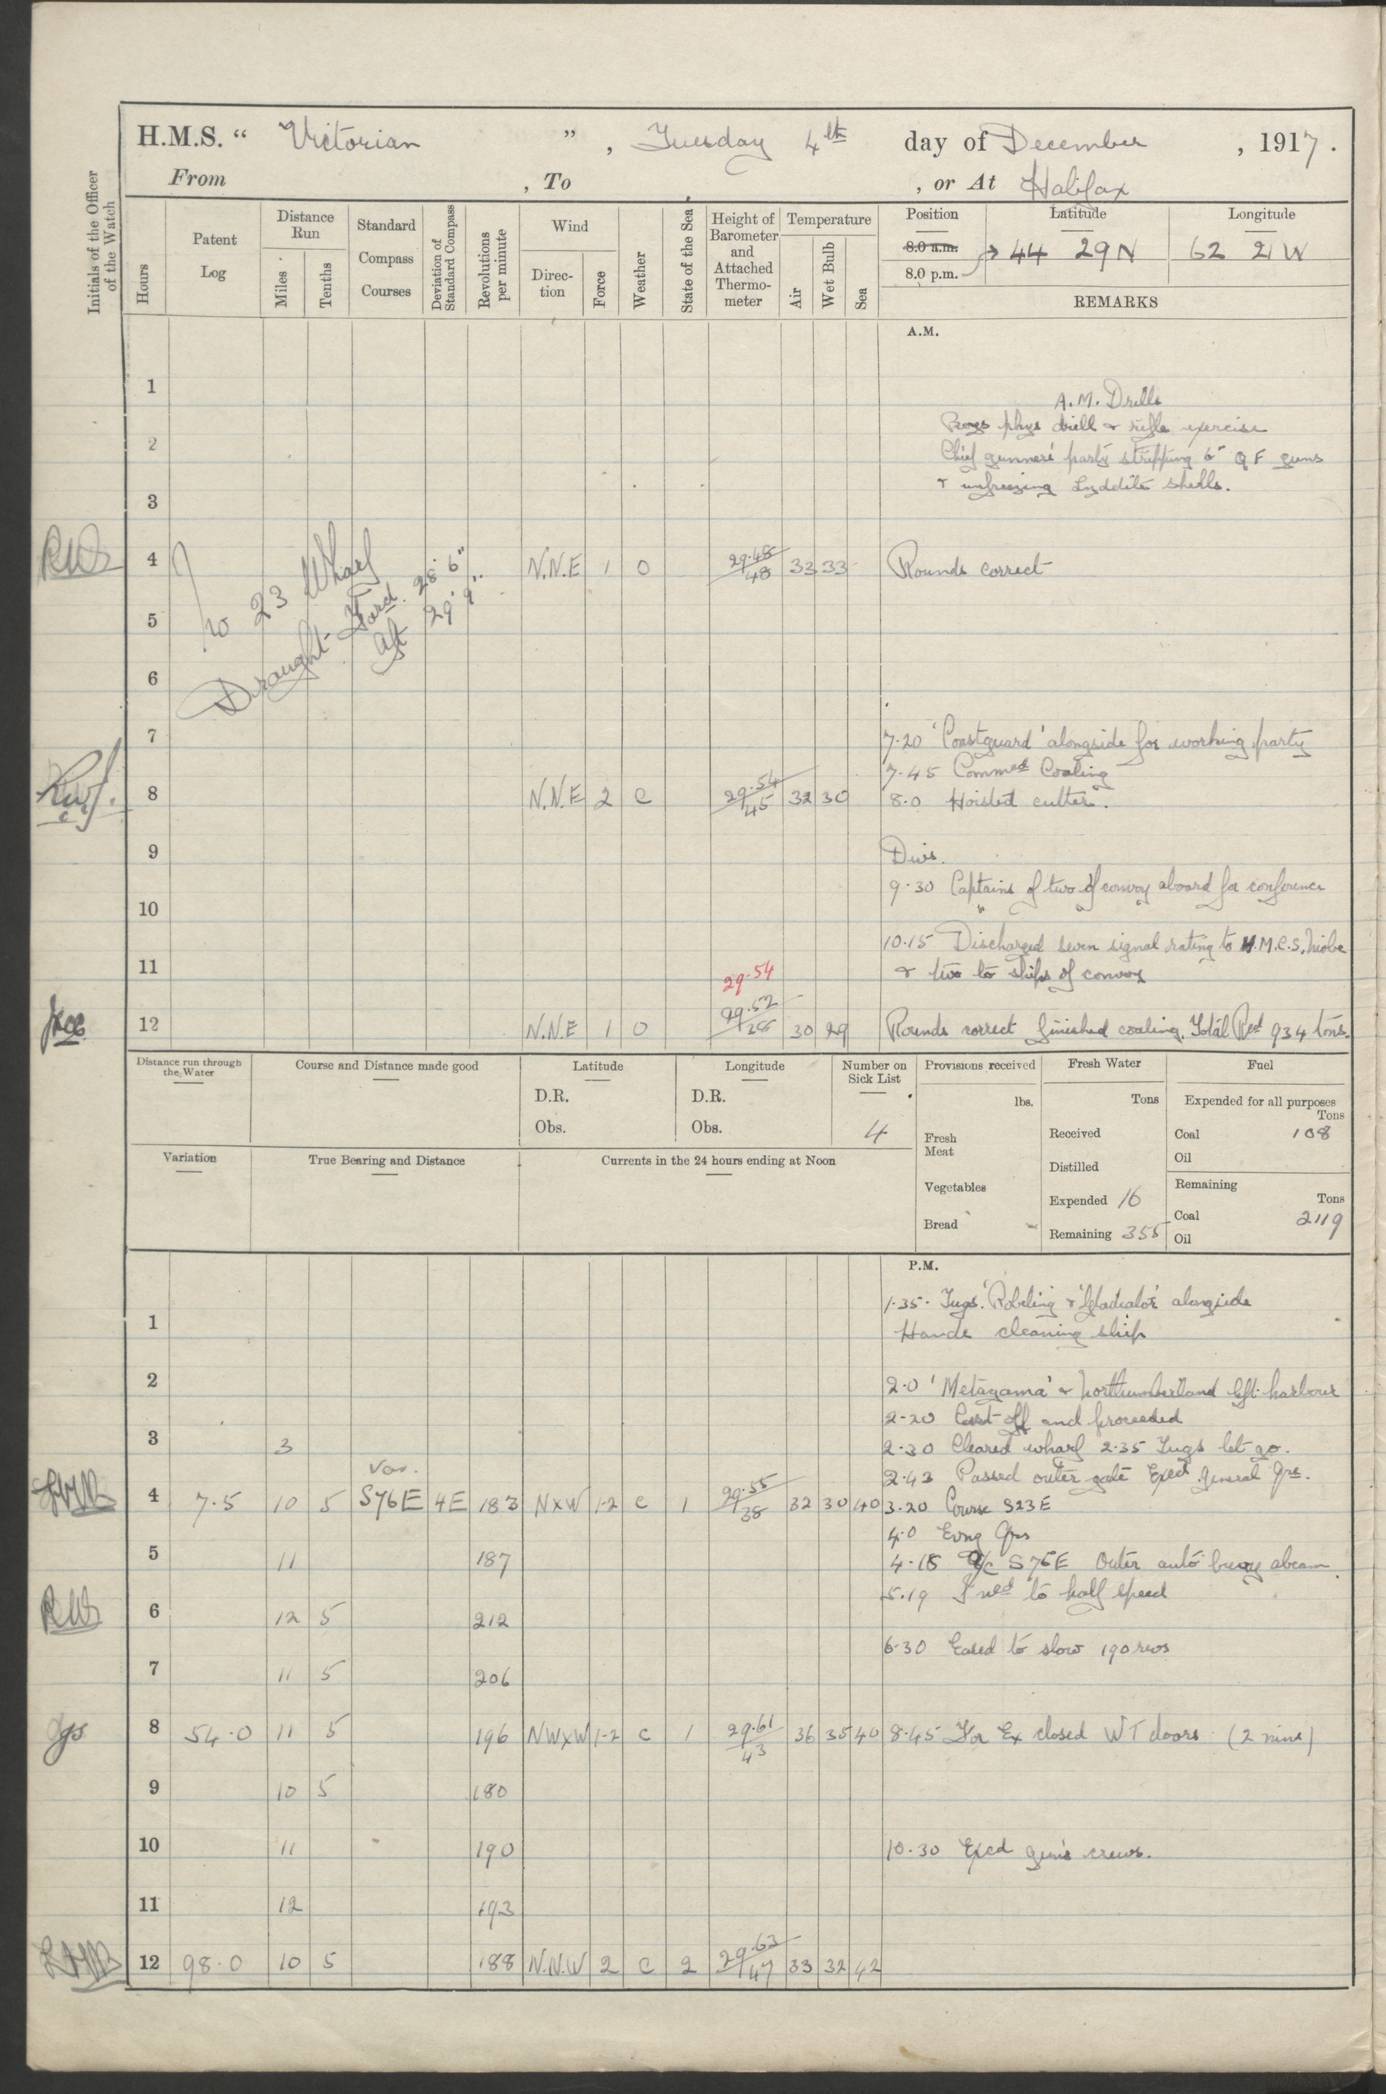 H.M.S. “ Victorian ” , Tuesday 4th day of December , 1917 .
From , To , or At Halifax
Initials of the Officer of the Watch
Hours
Patent Log
Distance Run
Miles
Tenths
Standard Compass Courses
Deviation of Standard Compass
Revolutions per minute
Wind
Direc-tion
Force
Weather
State of the Sea
Height of Barometer and Attached Thermo-meter
Temperature
Air
Wet Bulb
Sea
Position Latitude Longitude
8.0 a.m.
8.0 p.m. 44 29 N 62 21 W
REMARKS
A.M.
1
A.M. Drills
Boys phys drill & rifle exercise
2
Chief gunners' party stripping 6" QF guns
& unfreezing Lyddite shells.
3
4 N.N.E 1 O 29.48 48 33 33 Rounds correct
No 23 Wharf
Draught Ford. 28' 6"
Aft 29' 9"
5
6
7
7.20 'Coastguard' alongside for working party
7.45 Commed Coaling
8 N.N.E 2 C 29.54 45 32 30 8.0 Hoisted cutter.
9 Divs.
9.30 Captains of two of convoy aboard for conference
10
10.15 Discharged seven signal rating to H.M.C.S. Niobe
11 & two to ships of convoy
29.54
12 N.N.E 1 O 29.52 30 29 Rounds correct finished coaling. Total Recd 934 tons.
Distance run through the Water
Course and Distance made good
Latitude
D.R.
Obs.
Longitude
D.R.
Obs.
Number on Sick List
4
Provisions received
lbs.
Fresh Meat
Vegetables
Bread
Fresh Water
Tons
Received
Distilled
Expended 16
Remaining 355
Fuel
Expended for all purposes
Tons
Coal 108
Oil
Remaining
Tons
Coal 2119
Oil
Variation
True Bearing and Distance
Currents in the 24 hours ending at Noon
P.M.
1.35. Tugs 'Robeling & 'Gladiator' alongside
1 Hands cleaning ship
2 2.0 'Metagama' & Northumberland left harbour
2-20 Cast off and proceeded
3 3 2.30 Cleared wharf 2.35 Tugs let go.
2.43 Passed outer gate Exed general qrs.
Var.
4 7.5 10 5 S76E 4E 183 NxW 1-2 C 1 29.55 38 32 30 40 3.20 Course S23E
4.0 Evng Qrs
5 11 187 4.18 A/c S76E Outer auto buoy abeam.
5.19 I ned to half speed
6 12 5 212
6.30 Eased to slow 190 revs
7 11 5 206
8 54.0 11 5 196 NWxW 1-2 C 1 29.61 43 36 35 40 8.45 For Ex closed WT doors (2 mins)
9 10 5 180
10 11 190 10.30 Exed guns crews.
11 12 193
12 98.0 10 5 188 N.N.W 2 C 2 29.63 47 33 32 42